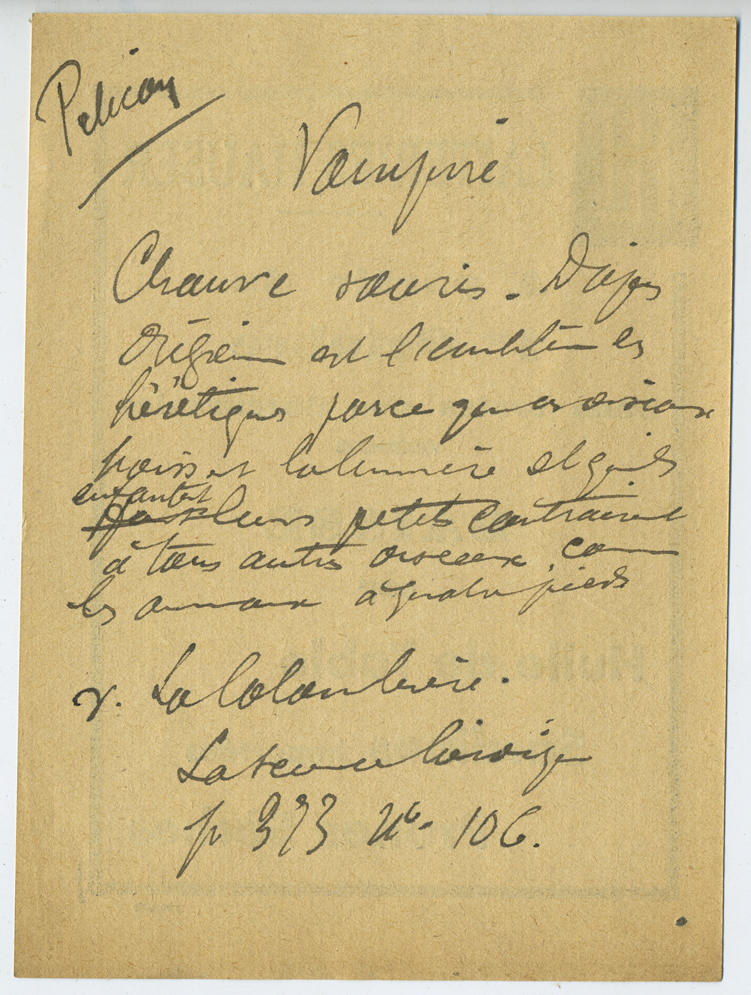 Pelican
Vampire
Chauve souris. D'après
Origène est l'emblème des
hérétiques parce que ces oiseaux
haïssent la lumière et qu'ils
enfantent
leurs petits contrairement
à tous autres oiseaux, comme
les animaux à quatre pieds
v. La Colombière.
La Science héroïque
p 373 No. 106.